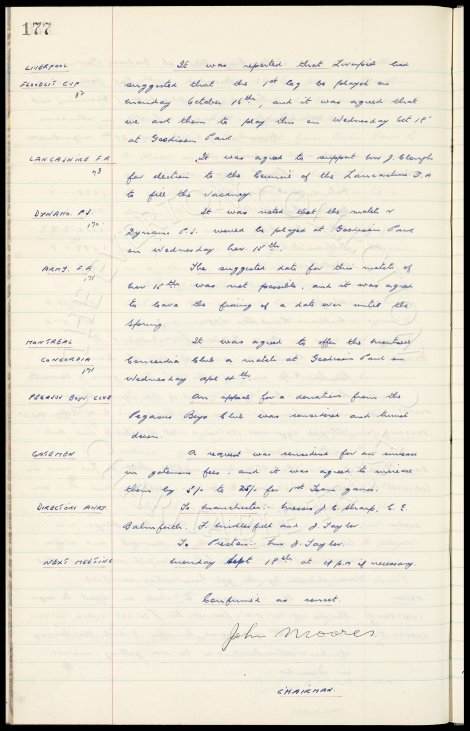 177
LIVERPOOL It was reported that Liverpool had
FLOODLIT CUP suggested that the 1st leg be played on
87 Monday October 16th, and it was agreed that
we ask them to play this on Wednesday Oct 18th
at Goodison Park.
LANCASHIRE F.A. It was agreed to support Mr J. Clough
73 for election to the Council of the Lancashire F.A
to fill the vacancy.
DYNAMO. It was noted that the match v
170 Dynamo would be played at Goodison Park
on Wednesday Nov. 15th.
ARMY. F.A. The suggested date for this match of
171 Nov 15th was not possible, and it was agreed
to leave the fixing of a date over until the
Spring.
MONTREAL It was agreed to offer the Montreal
CONCORDIA Concordia Club a match at Goodison Park on
171 Wednesday Apl
PEGASUS BOYS CLUB An appeal for a donation from the
Pegasus Boys Club was considered and turned
down.
GATEMEN A request was considered for an increase
in gatemens fees, and it was agreed to increase
them by 2/- to 25/- for 1st Team games.
DIRECTORS AWAY. To Manchester:- Messrs J. C. Sharp, C. E
Balmforth, F. Micklesfield and J. Taylor.
To Preston:- Mr J. Taylor.
NEXT MEETING Monday Sept 18th at 4 p.m if necessary.
Confirmed as correct.
John Moores
CHAIRMAN.